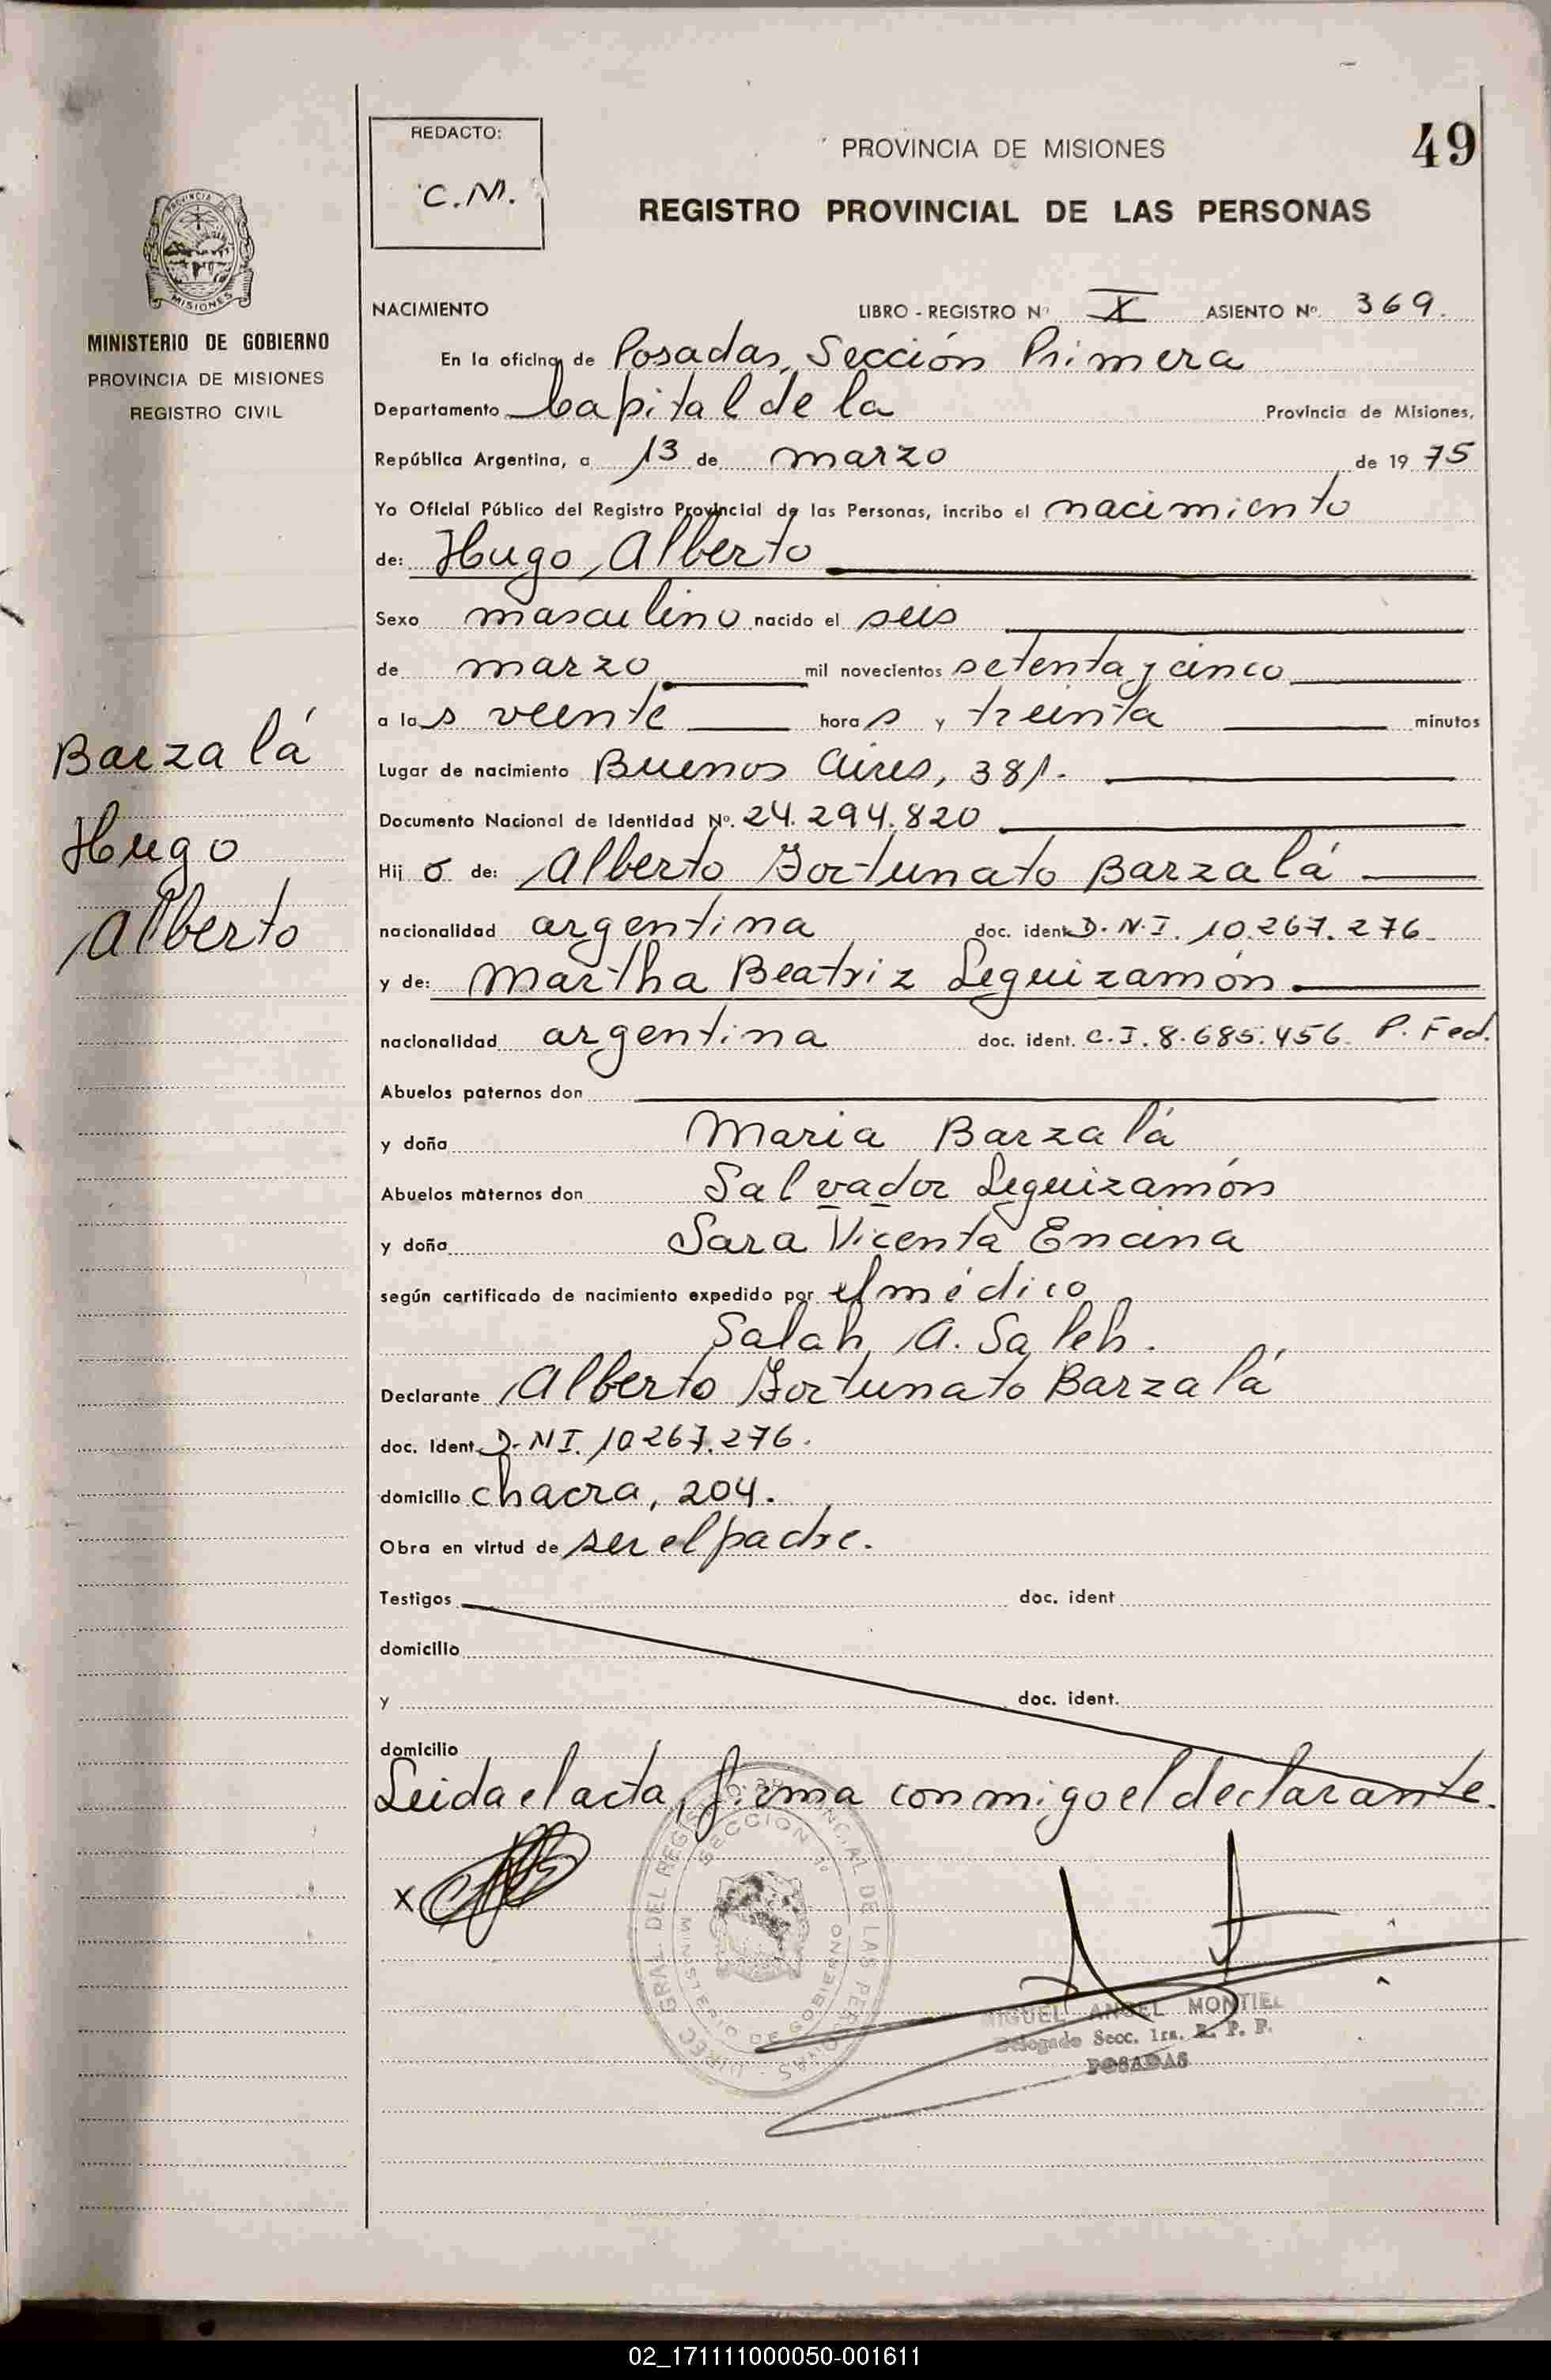 REDACTO:
C.M.
PROVINCIA DE MISIONES
49
REGISTRO PROVINCIAL DE LAS PERSONAS
PROVINCIA DE
MISIONES
MINISTERIO DE GOBIERNO
PROVINCIA DE MISIONES
REGISTRO CIVIL
Barzalá
Hugo
Alberto
NACIMIENTO LIBRO - REGISTRO Nº X ASIENTO Nº. 369.
En la oficina de Posadas, Sección Primera
Departamento Capital de la Provincia de Misiones,
República Argentina, a 13 de marzo de 1975
Yo Oficial Público del Registro Provincial de las Personas, incribo el nacimiento
de: Hugo Alberto
Sexo masculino nacido el seis
de marzo mil novecientos setenta y cinco
a las veinte horas y treinta minutos
Lugar de nacimiento Buenos Aires, 381.
Documento Nacional de Identidad Nº. 24.294.820
Hijo de: Alberto Fortunato Barzalá
nacionalidad argentina doc. ident. D.N.I. 10.267.276.
y de: Martha Beatriz Leguizamón
nacionalidad argentina doc. ident. C.I. 8.685.456. P. Fed.
Abuelos paternos don
y doña Maria Barzalá
Abuelos maternos don Salvador Leguizamón
y doña Sara Vicenta Encina
según certificado de nacimiento expedido por el médico
Salah A. Saleh.
Declarante Alberto Fortunato Barzalá
doc. Ident. D.N.I. 10.267.276.
domicilio chacra, 204.
Obra en virtud de ser el padre.
Testigos doc. ident
domicilio
y doc. ident.
domicilio
Leida el acta, firma conmigo el declarante.
x
DIREC. GRAL. DEL REGISTRO PROVINCIAL DE LAS PERSONAS
SECCION 1ª
MINISTERIO DE GOBIERNO
MIGUEL ANGEL MONTIEL
Delegado Secc. 1ra. R. P. P.
POSADAS
02_171111000050-001611